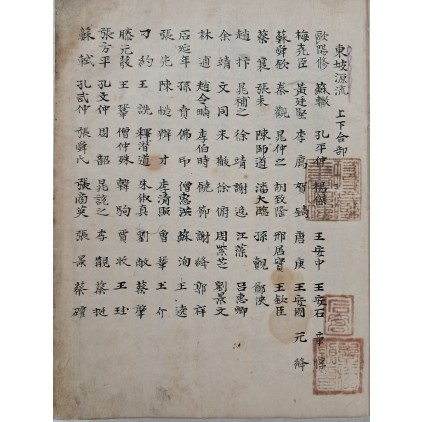 東坡源流 上下合部
歐陽修 蘇轍 孔平仲 楊 王安中 王安石 章惇
梅堯臣 黃廷堅 李廌 賀鑄 唐庚 王安國 元絳
蘇舜欽 秦觀 晁仲之 胡致隆 邢居實 王欽臣
蔡襄 張耒 陳師道 潘大臨 孫觀 鄭俠
趙抃 晁補之 徐靖 謝逸 江藻 呂惠卿
余靖 文同 米黻 徐俯 周紫芝 劉景文
林逋 趙令畤 李伯時 饒節 謝絳 郭祥
石延年 孫賁 佛印 僧惠洪 蘇洵 王逵
張先 陳慥 辯才 李清照 曾鞏 王介
刁約 王詵 釋潛道 朱淑真 劉敞 蔡肇
滕元發 王鞏 僧仲殊 韓駒 賈收 王珪
張方平 孔文仲 周韶 晁說之 李覯 蔡挺
蘇軾 孔武仲 張舜民 張商英 張景 蔡礩